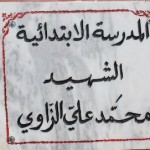 المدرسة الابتدائية
الشهيد
محمّد علي الزّاوي